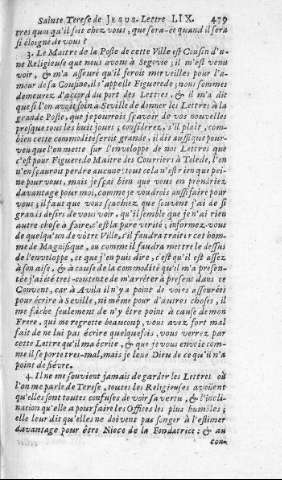 Sainte Terese de JESUS. Lettre LIX. 479
tres quand qu'il soit chez vous, que sera-ce quand il sera
si éloigné de vous ?
3. Le Maitre de la Poste de cette Ville est Cousin d'u-
ne Religieuse que nous avons à Segovie ; il m'est venu
voir, & m'a assuré qu'il feroit merveilles pour l'a-
mour de sa Cousine, il s'appelle Figuerede ; nous sommes
demeurez d'accord du port des Lettres, & il m'a dit
que si l'on avoit soin à Seville de donner les Lettres à la
grande Poste, que je pourrois sçavoir de vos nouvelles
presque tous les huit jours ; considerez, s'il plait, com-
bien cette commodité seroit grande, il dit aussi que pour-
veu que l'on mette sur l'enveloppe de nos Lettres que
c'est pour Figuerede Maitre des Courriers à Tolede, l'on
n'en sçauroit perdre aucune : tout cela n'est rien que pei-
ne pour vous, mais je sçai bien que vous en prendriez
davantage pour moi, comme je voudrois aussi faire pour
vous ; il faut que vous sçachiez que souvent j'ai de si
grands desirs de vous voir, qu'il semble que je n'ai rien
autre chose à faire, c'est la pure verité ; informez-vous
de quelqu'un de vôtre Ville, s'il faudra traiter cet hom-
me de Magnifique, ou comme il faudra mettre le dessus
de l'enveloppe, ce que j'en puis dire, c'est qu'il est assez
à son aise, & à cause de la commodité qu'il m'a presen-
tée j'ai été tres-contente de m'arrêter à present dans ce
Convent, car à Avila il n'y a point de voies assurées
pour écrire à Seville, ni même pour d'autres choses, il
me fâche seulement de n'y être point à cause de mon
Frere, qui me regrette beaucoup, vous avez fort mal
fait de ne lui pas écrire quelquefois, vous verrez par
cette Lettre qu'il m'a écrite, & que je vous envoie com-
me il se porte tres-mal, mais je louë Dieu de ce qu'il n'a
point de fiévre.
4. Il ne me souvient jamais de garder les Lettres où
l'on me parle de Terese, toutes les Religieuses avoüent
qu'elles sont toutes confuses de voir sa vertu, & l'incli-
nation qu'elle a pour faire les Offices les plus humbles ;
elle leur dit qu'elles ne doivent pas songer à l'estimer
davantage pour être Niece de la Fondatrice ; & au
con-